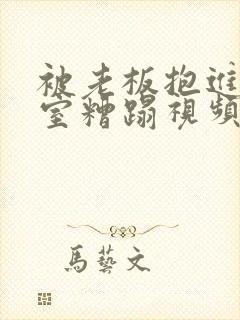 被老板抱進
室糟蹋視頻
馬藝文